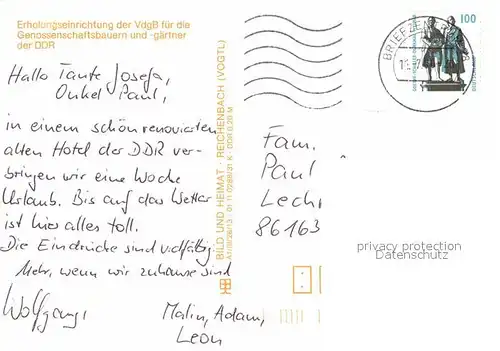 Erholungseinrichtung der VdgB für die
Genossenschaftsbauern und -gärtner
der DDR
Hallo Tante Josefa,
Onkel Paul,
in einem schön renovierten
alten Hotel der DDR ver-
bringen wir eine Woche
Urlaub. Bis auf das Wetter
ist hier alles toll.
Die Eindrücke sind vielfältig.
Mehr, wenn wir zuhause sind
Wolfgang,
Malin, Adam,
Leon
BILD UND HEIMAT · REICHENBACH (VOGTL)
DDR 0,20 M
100
BRIEFZENTRUM
Fam.
Paul
Lech
86163
privacy protection
Datenschutz